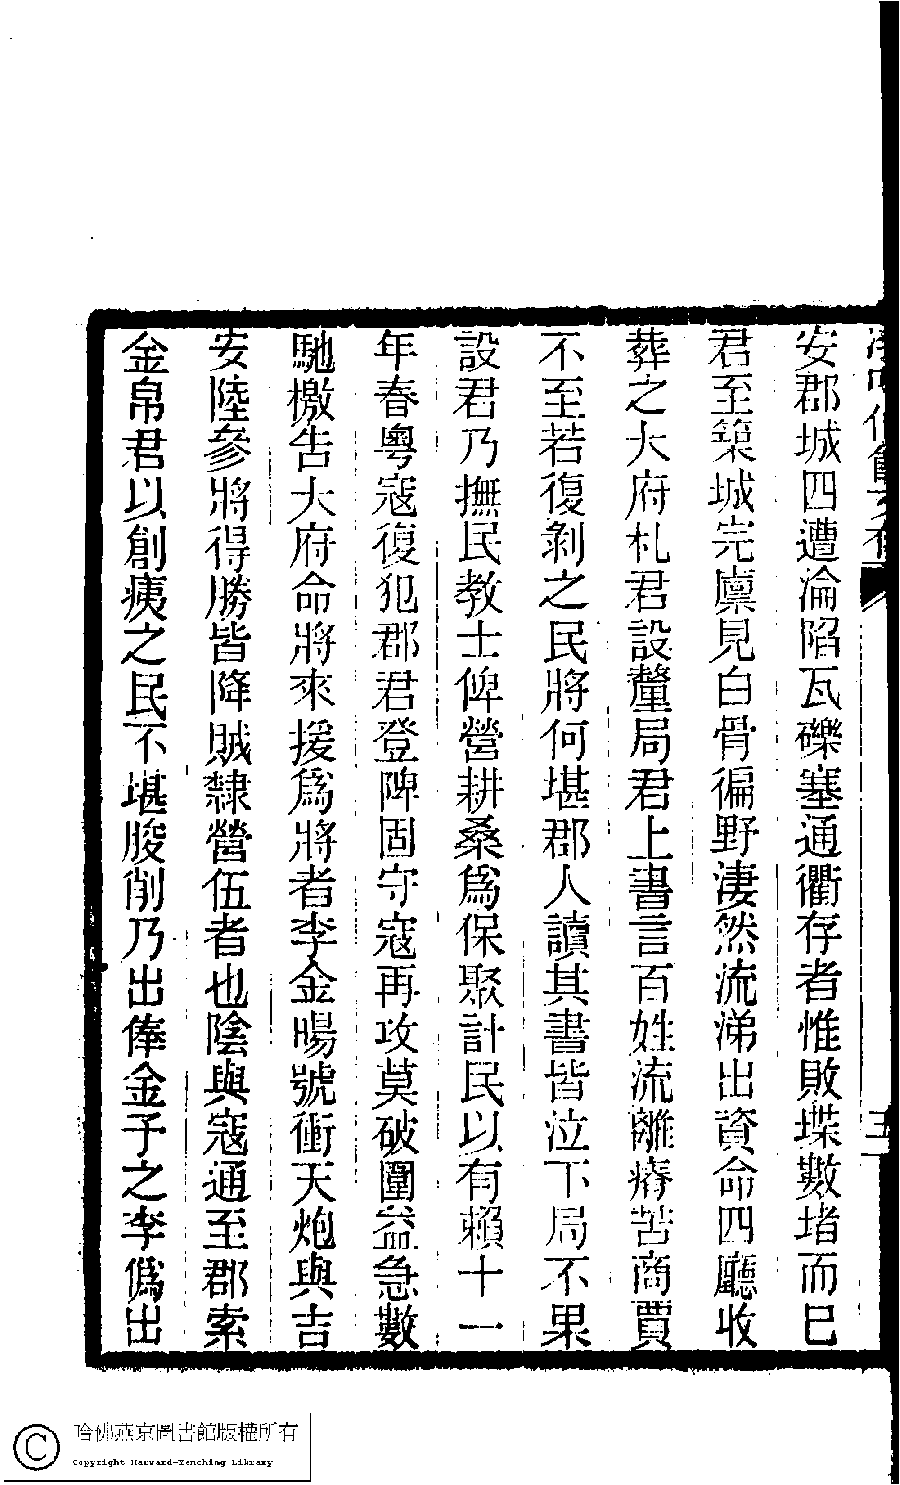 安郡城四遭淪陷瓦礫塞通衢存者惟敗堞數堵而巳
君至築城完廩見白骨徧野淒然流涕出資命四廳收
葬之大府札君設釐局君上書言百姓流離瘠苦商賈
不至若復剝之民將何堪郡人讀其書皆泣下局不果
設君乃撫民教士俾營耕桑爲保聚計民以有賴十一
年春粵寇復犯郡君登陴固守寇再攻莫破圍益急數
馳檄告大府命將來援爲將者李金暘號衝天炮與吉
安陸參將得勝皆降賊隸營伍者也陰與寇通至郡索
金帛君以創痍之民不堪朘削乃出俸金予之李僞出
五
哈佛燕京圖書館版權所有
Copyright Harvard-Yenching Library